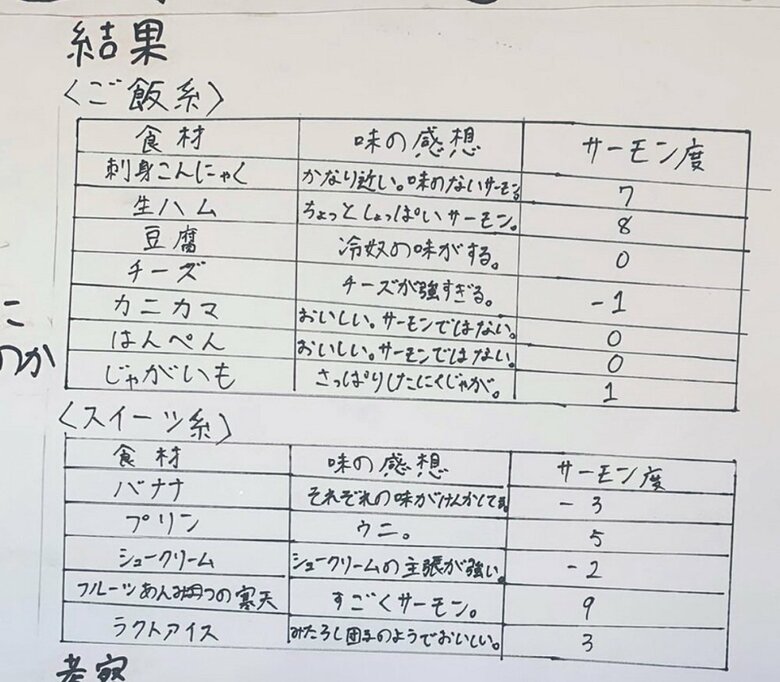 結果
〈ご飯系〉
食材 味の感想 サーモン度
刺身こんにゃく かなり近い。味のないサーモン。 7
生ハム ちょっとしょっぱいサーモン。 8
豆腐 冷奴の味がする。 0
チーズ チーズが強すぎる。 -1
カニカマ おいしい。サーモンではない。 0
はんぺん おいしい。サーモンではない。 0
じゃがいも さっぱりしたにくじゃが。 1
こ
のか
〈スイーツ系〉
食材 味の感想 サーモン度
バナナ それぞれの味がけんかしてる。 -3
プリン ウニ。 5
シュークリーム シュークリームの主張が強い。 -2
フルーツあんみつの寒天 すごくサーモン。 9
ラクトアイス みたらし団子のようでおいしい。 3
考察